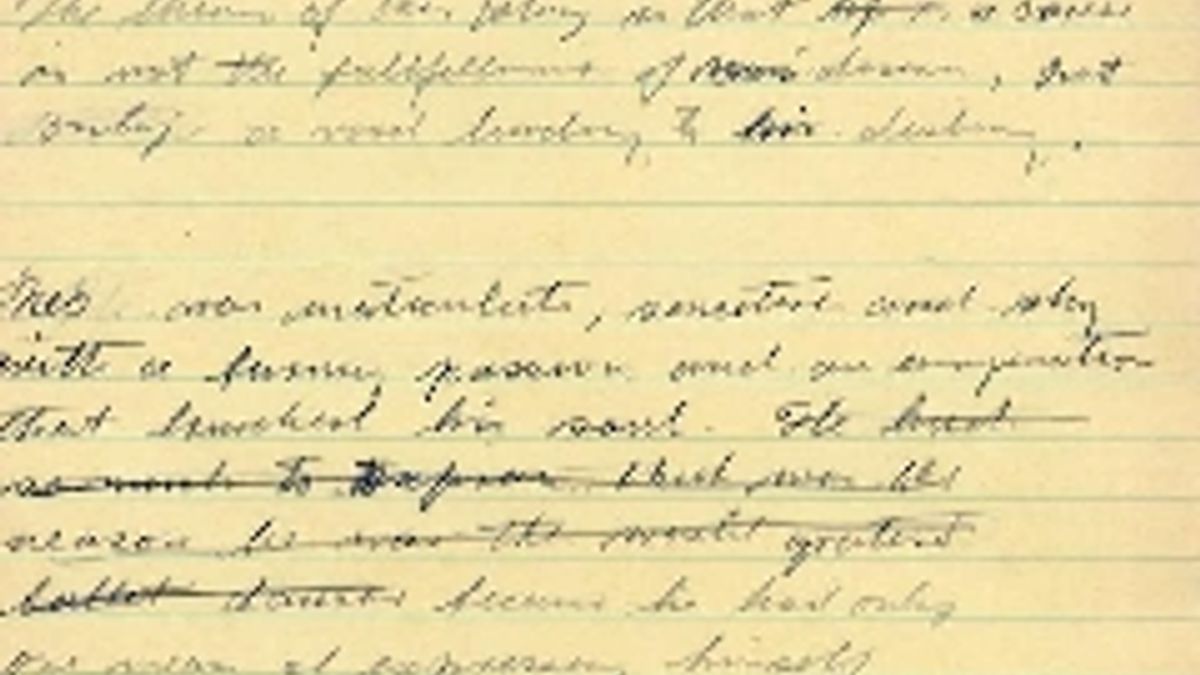 The theme of this story is that a career
is not the fulfillment of man's dream, but
only a road leading to his destiny.
was inarticulate, sensitive and shy
with a burning passion and an
that touched his soul. He had
so much to express that was the
reason he was the world's greatest
ballet dancer because he had only
one means of expressing himself